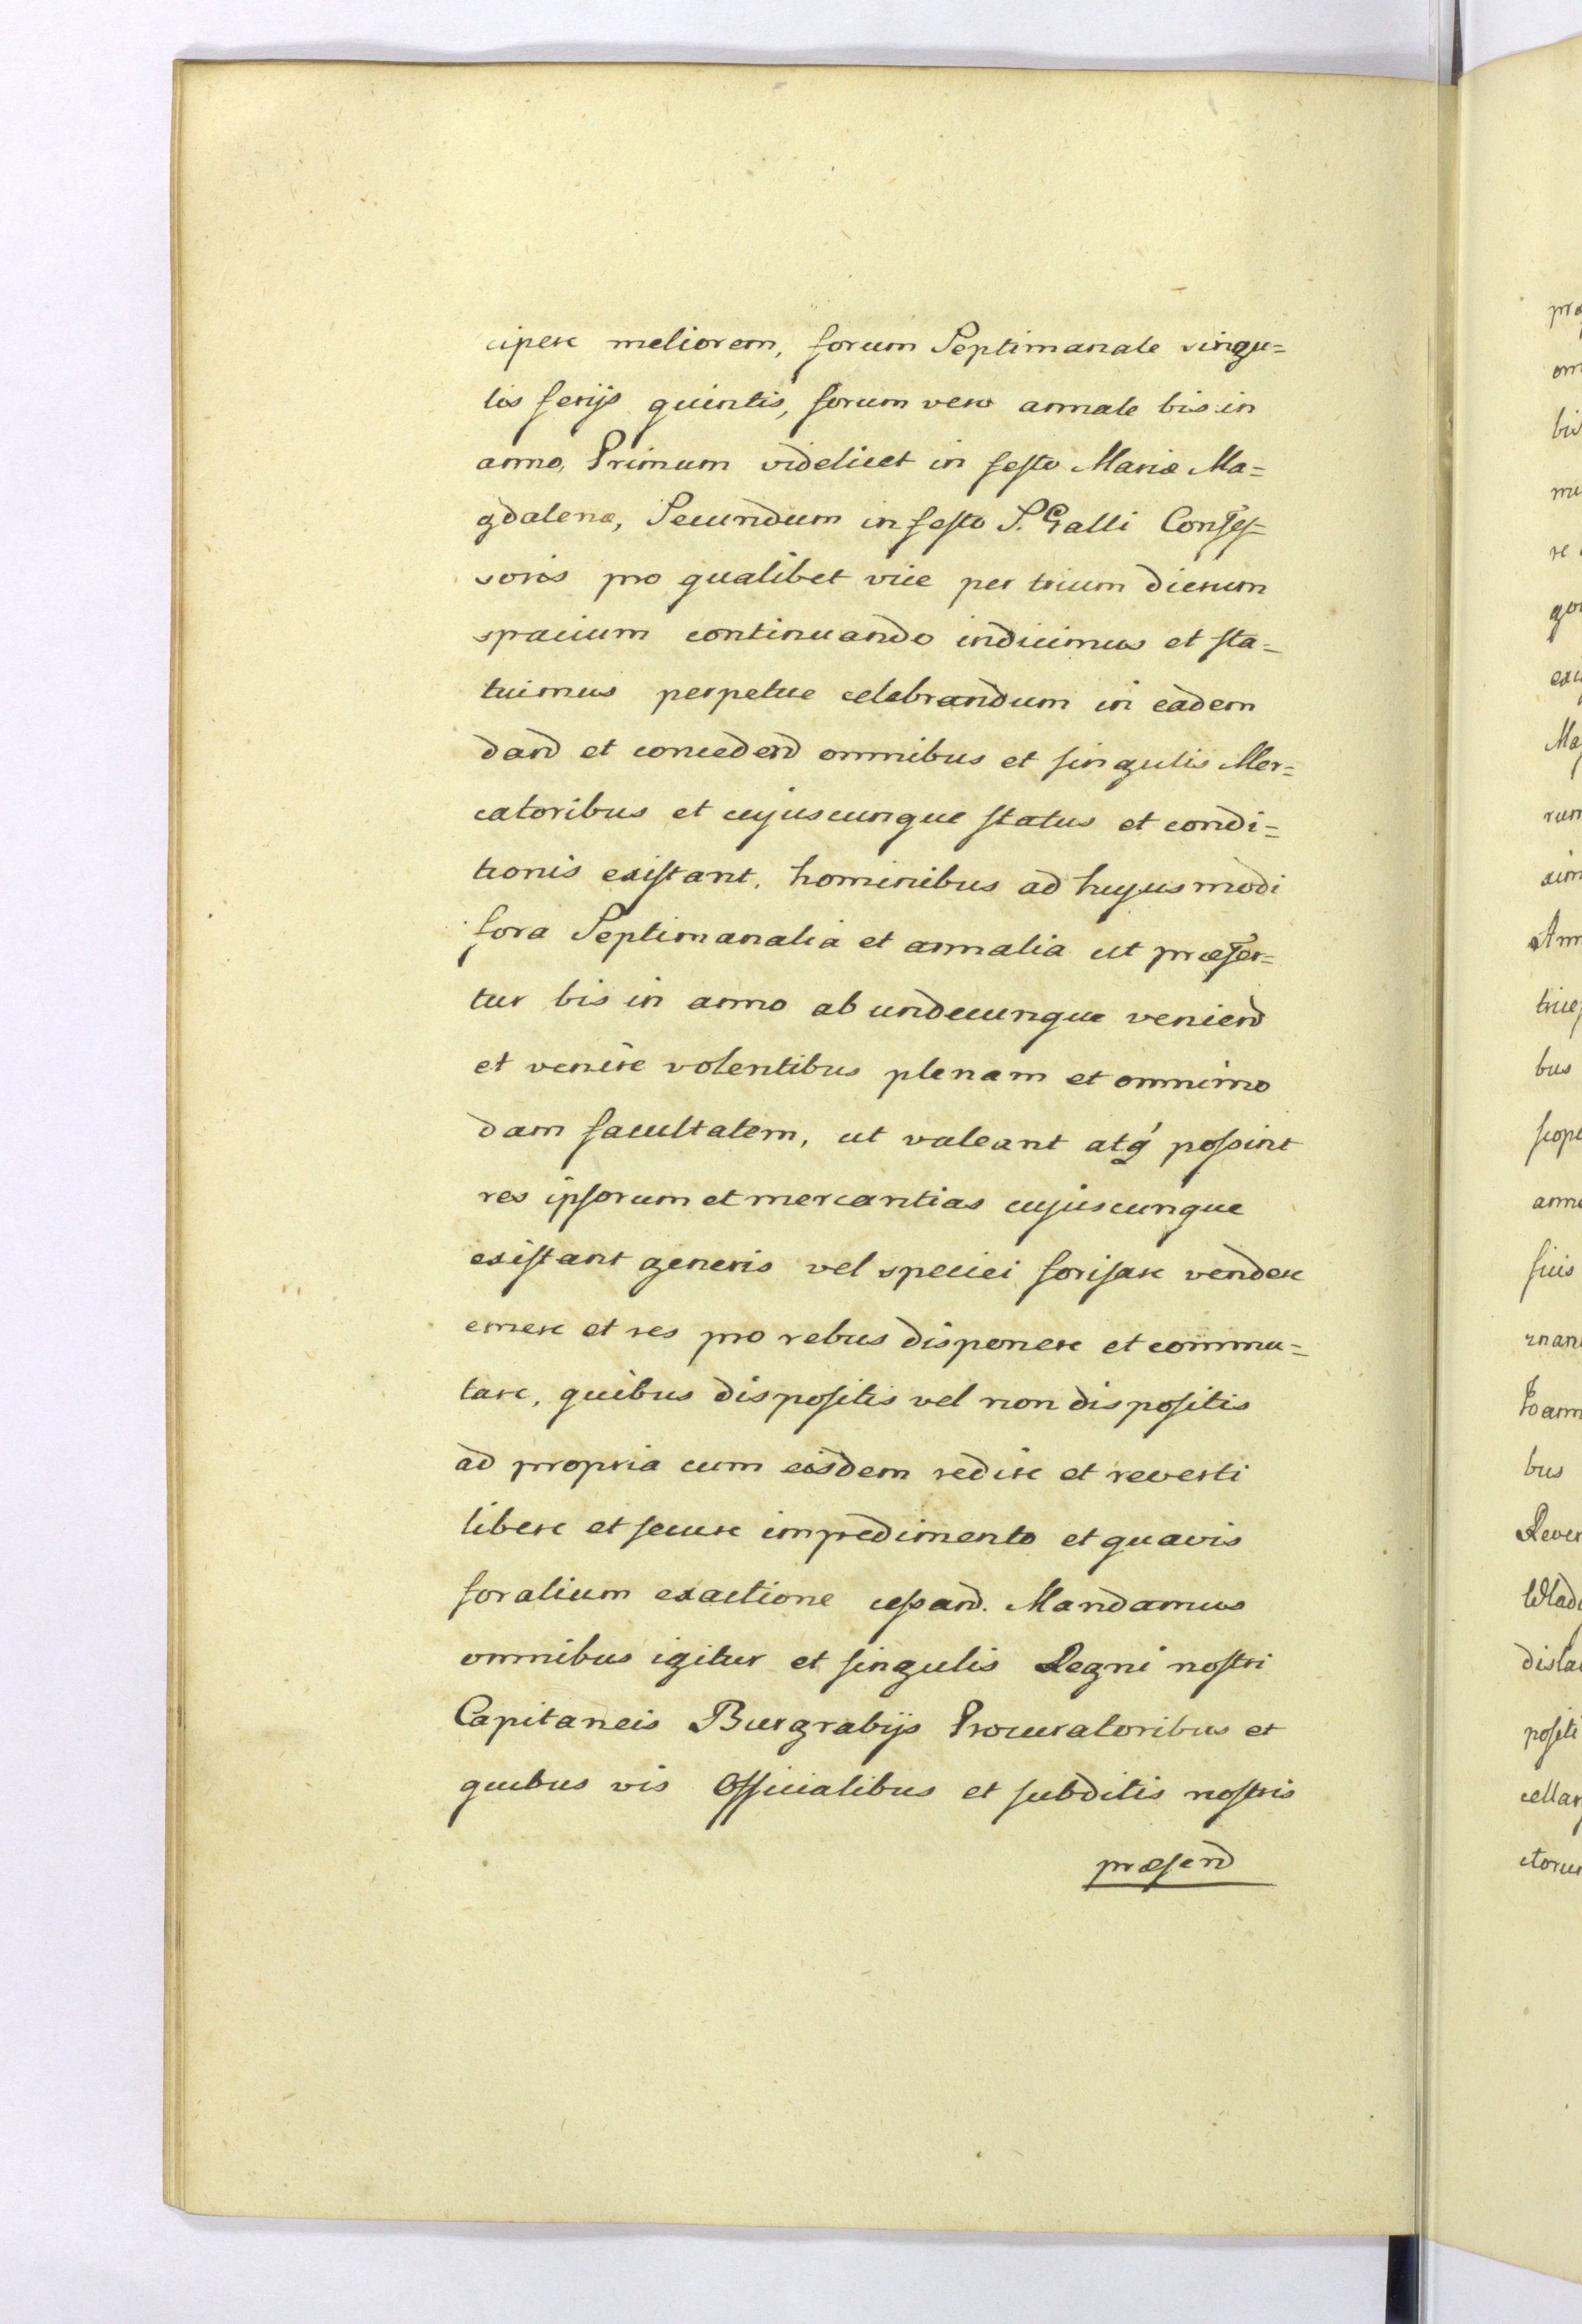 cipere meliorem, forum Septimanale singu=
lis ferijs quintis, forum vero annale bis in
anno, Primum videlicet in festo Mariæ Ma=
gdalenæ, Secundum in festo S. Galli Confes=
soris pro qualibet vice per trium dierum
spacium continuando indicimus et sta=
tuimus perpetue celebrandum in eadem
dand et conceden̄d omnibus et singulis Mer=
catoribus et cujuscunque status et condi=
tionis existant, hominibus ad hujusmodi
fora Septimanalia et annalia ut præfer=
tur bis in anno ab undecunque veniend
et venire volentibus plenam et omnimo
dam facultatem, ut valeant atq́ possint
res ipsorum et mercantias cujuscunque
existant generis vel speciei forisare vendere
emere et res pro rebus disponere et commu=
tare, quibus dispositis vel non dispositis
ad propria cum eisdem redire et reverti
libere et secure impedimento et quavis
foralium exactione cessand. Mandamus
omnibus igitur et singulis Regni nostri
Capitaneis Burgrabijs Procuratoribus et
quibus vis Officialibus et subditis nostris
præsend
pro
om
bis
mu
re
gor
exi
Ma
rum
xim
Ann
trice
bus
scope
anne
ficis
rnan
Ioann
bus
Rever
Wlad
disla
positi
cellar
ctoru